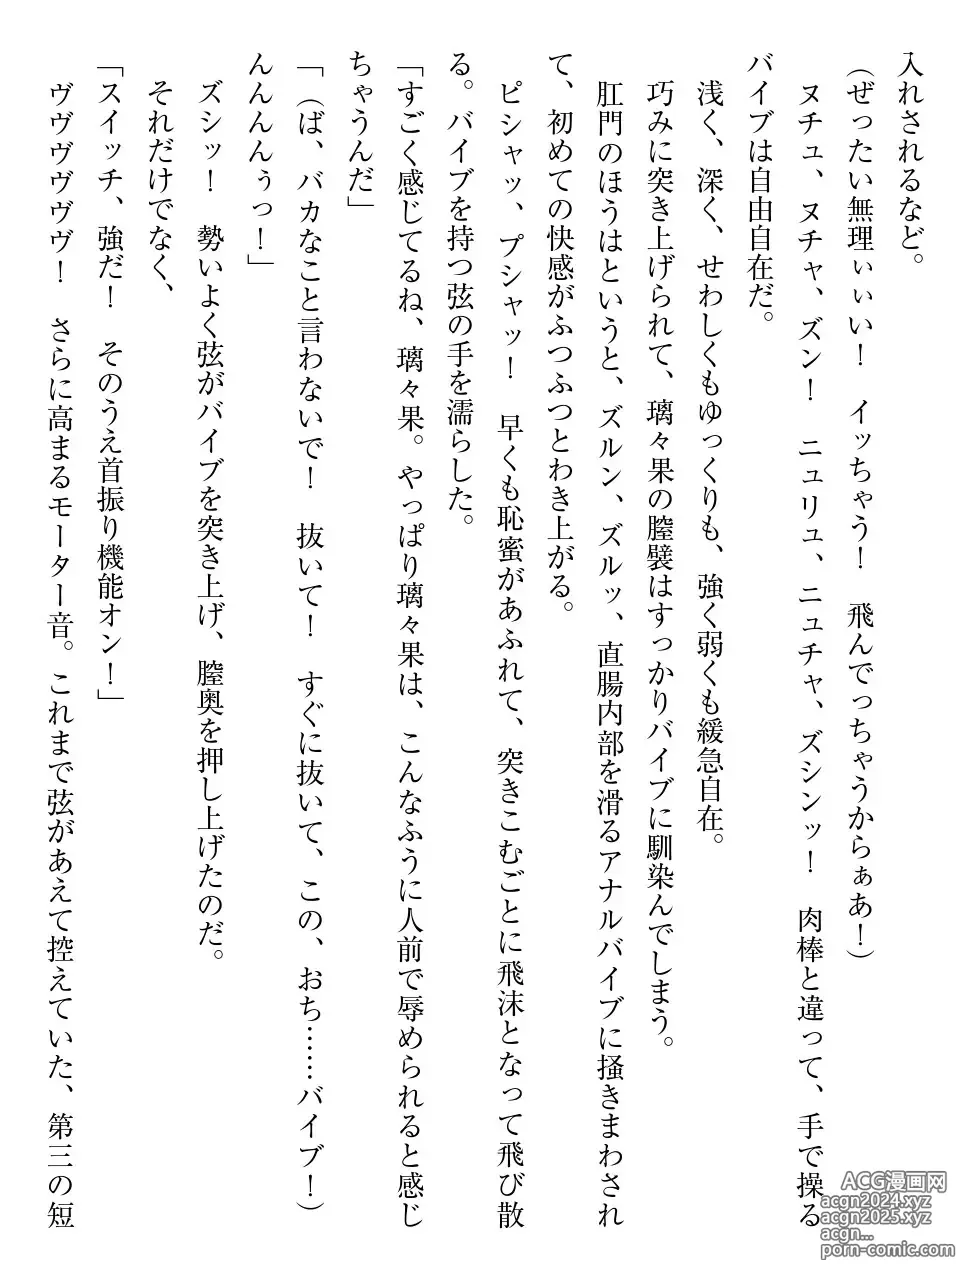 入れされるなど。
(ぜったい無理ぃぃい！　イッちゃう！　飛んでっちゃうからぁあ！)
ヌチュ、ヌチャ、ズン！　ニュリュ、ニュチャ、ズシンッ！　肉棒と違って、手で操る
バイブは自由自在だ。
浅く、深く、せわしくもゆっくりも、強く弱くも緩急自在。
巧みに突き上げられて、璃々果の膣襞はすっかりバイブに馴染んでしまう。
肛門のほうはというと、ズルン、ズルッ、直腸内部を滑るアナルバイブに掻きまわされ
て、初めての快感がふつふつとわき上がる。
ピシャッ、プシャッ！　早くも恥蜜があふれて、突きこむごとに飛沫となって飛び散
る。バイブを持つ弦の手を濡らした。
「すごく感じてるね、璃々果。やっぱり璃々果は、こんなふうに人前で辱められると感じ
ちゃうんだ」
「(ば、バカなこと言わないで！　抜いて！　すぐに抜いて、この、おち……バイブ！)
んんんんぅっ！」
ズシッ！　勢いよく弦がバイブを突き上げ、膣奥を押し上げたのだ。
それだけでなく、
「スイッチ、強だ！　そのうえ首振り機能オン！」
ヴヴヴヴヴ！　さらに高まるモーター音。これまで弦があえて控えていた、第三の短
ACG漫画网
acgn2024.xyz
acgn2025.xyz
acgn...
porn-comic.com